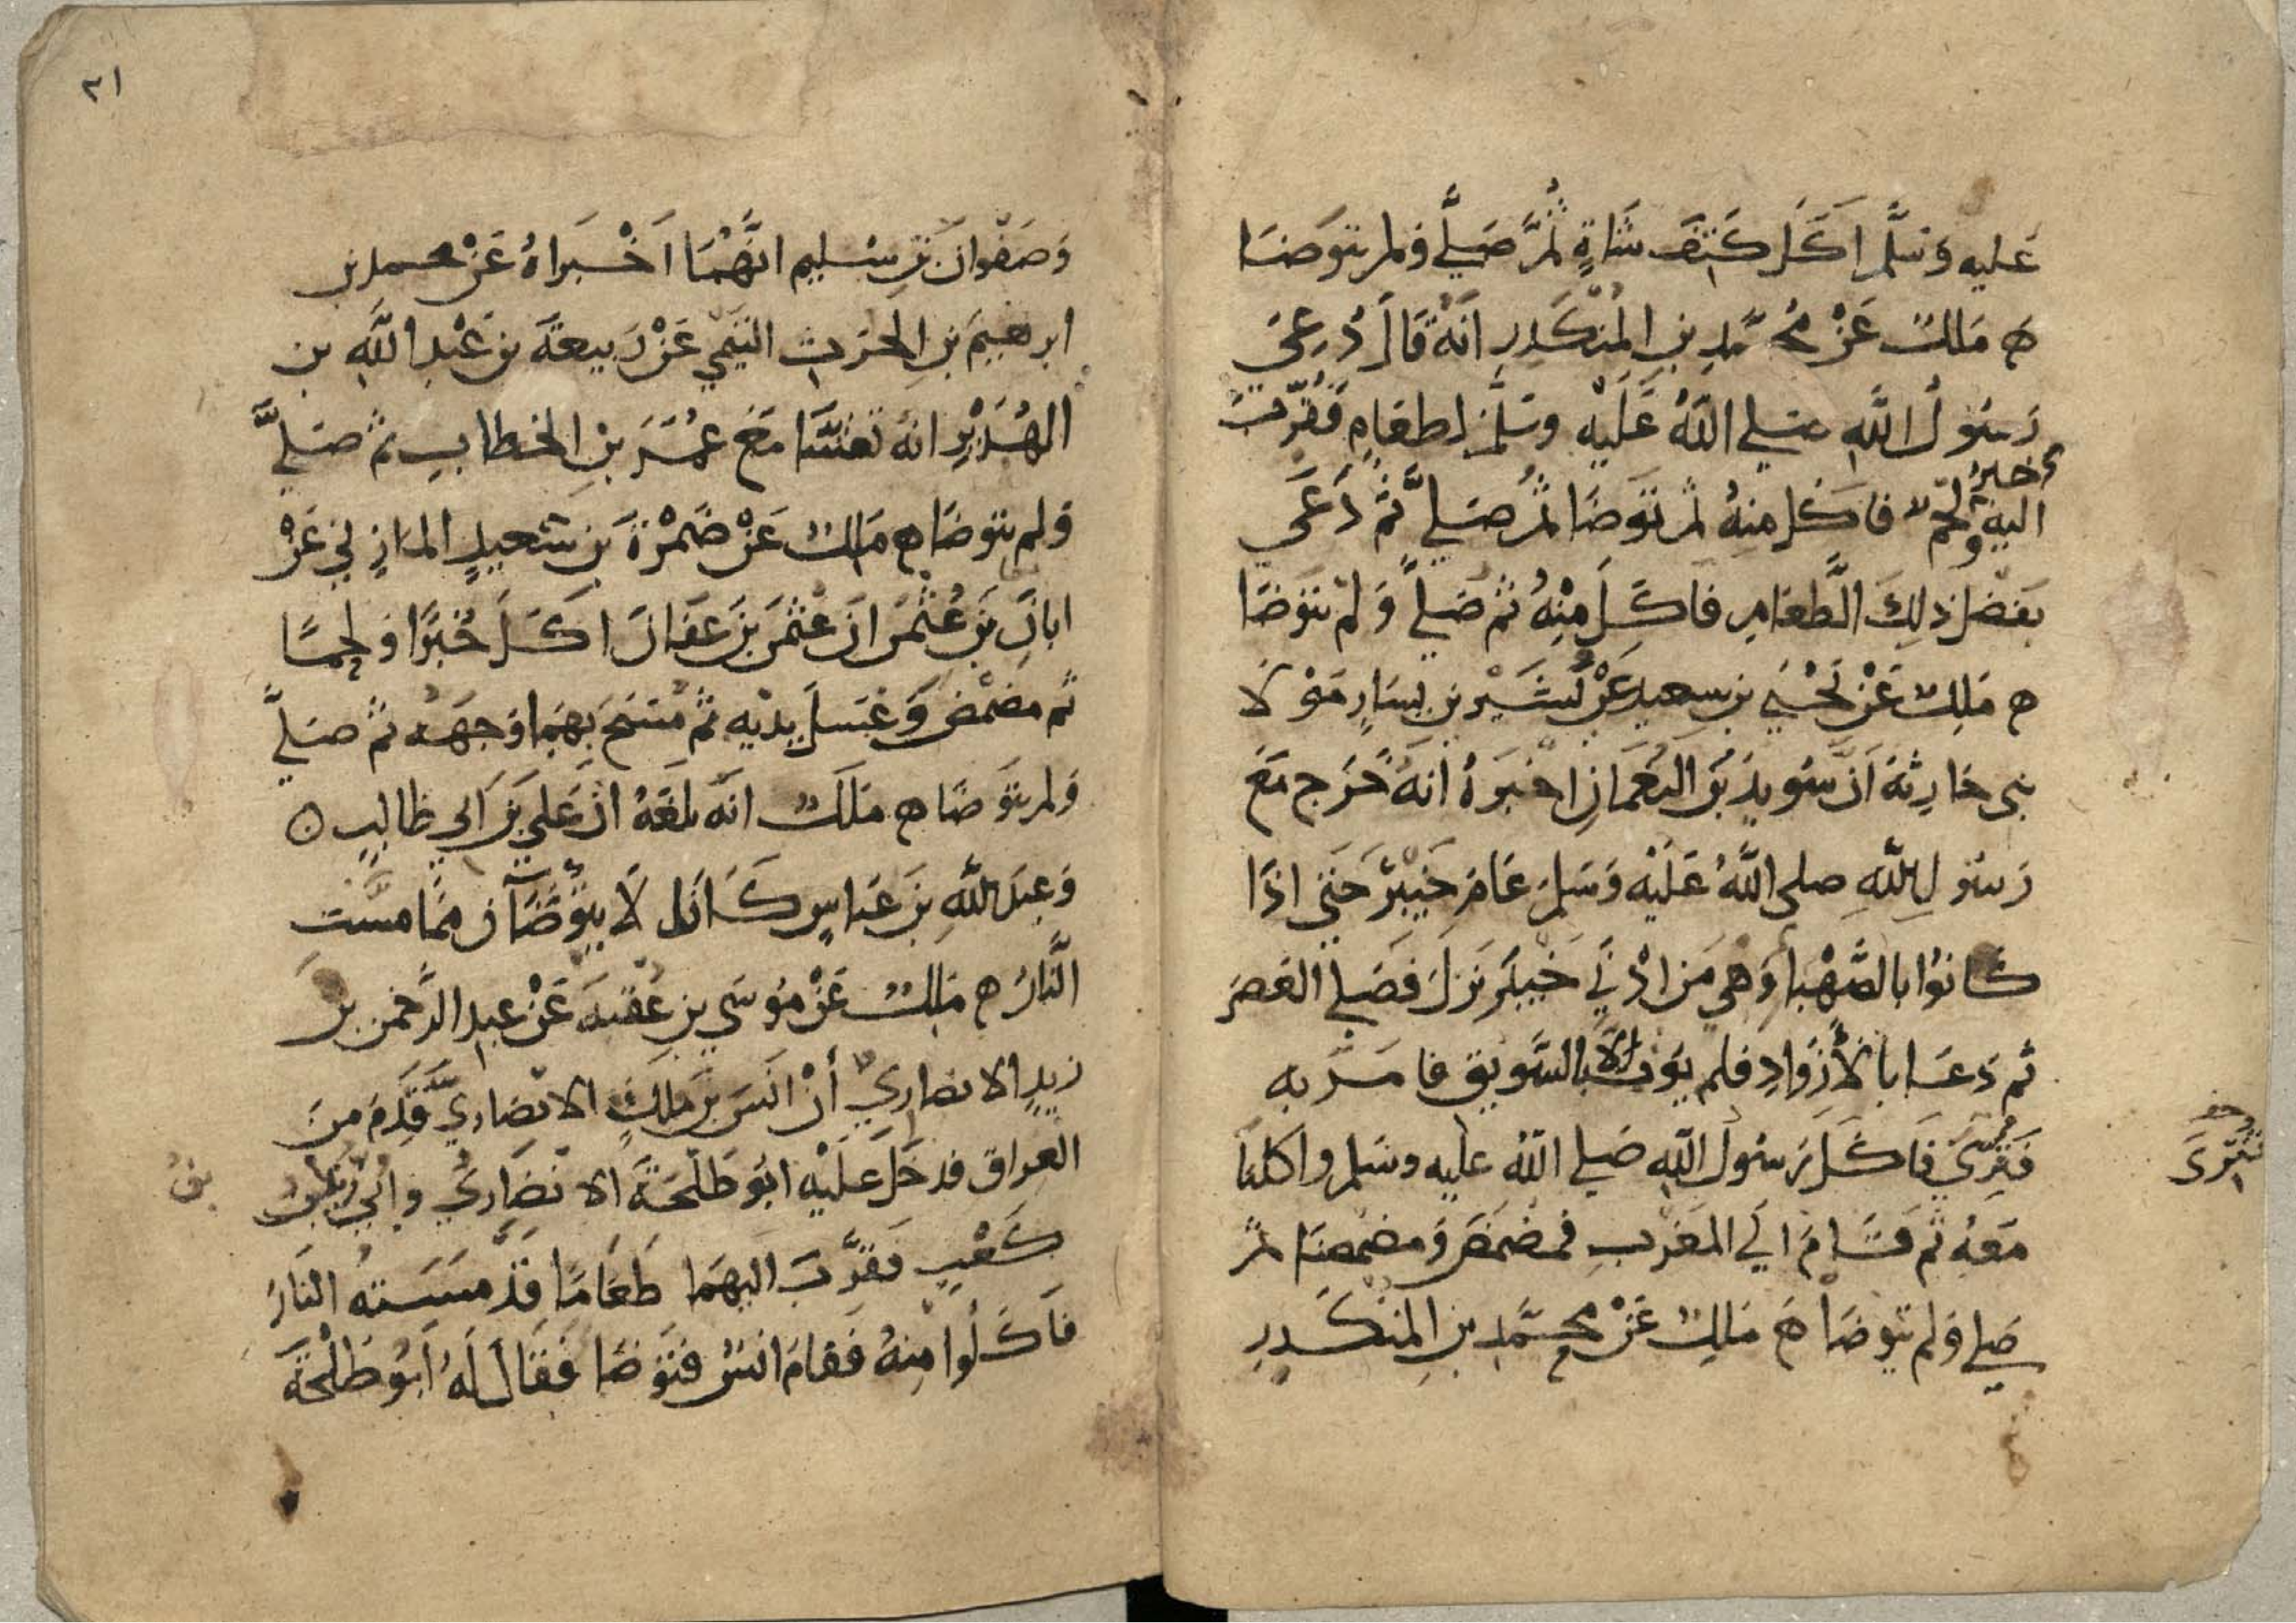 عَليه وَسَلَّم اَكَلَ كَتِفَ شَاةٍ ثُمَّ صَلَّي وَلم يتوَضَا
ه مَالك عَنْ مُحَمَّدِ بنِ المُنْكَدِرِ اَنَّهُ قَالَ دُعِيَ
رَسُولُ اللَّهِ صَلي اللَّهُ عَلَيْهِ وَسَلَّم لطعَامٍ فَقُرِّبَ
اليه خبزٌ وَلحمٌ فاكل منهُ ثم تَوَضَا ثم صَلي ثُمَّ دَعَى
بفَضل ذلِكَ الطَّعَامِ فاكَلَ مِنْهُ ثم صَلي وَلَمْ يتوَضَا
ه مَالِك عَنْ يَحْيَي بن سعيدٍ عَنْ بُشَيْرِ بن يسَارٍ مَوْلَا
بني حَارِثة اَنَّ سُوَيدَ بْنَ النعْمَانِ اخبَرَهُ اَنَّهُ خَرَج مَعَ
رَسُولِ اللَّهِ صلى اللَّهُ عَلَيْه وَسَلم عَامَ خَيبَرَ حَتي اذَا
كَانوُا بالصَّهْبَا وَهي مَن ادْني خَيبَر نزَلَ فصَلي العَصرَ
ثم دَعَا بالاَزْوَادِ فلم يوت الا بالسَّويق فامَرَ به
فَثُرِّيَ فَاكَلَ رَسُولُ اللَّهِ صَلي اللَّهُ عليه وسَلم واكلنَا
مَعَهُ ثم قَامَ اليَ المَغرب فمضمَضَ وَمضمضنَا ثم
صَلي وَلم يتوضَا ه مَالِك عَنْ محمَّدِ بنِ المنْكَدِرِ
فَثُرِّيَ
٢١
وَصَفْوَانَ بْنِ سُليم انَّهُمَا اَخْبَرَاهُ عَنْ محمد بن
ابرهيمَ بنِ الحرث التيمي عَنْ رَبيعَةَ بن عَبْدِ اللَّهِ بن
الهُدَيْرِ انهُ تعَشَّا مَعَ عُمَرَ بنِ الخطاب ثم صَلَّي
وَلم يتوضَا ه مَالك عَنْ ضَمْرَةَ بن سَعيدٍ المازني عَنْ
ابانَ بْنِ عُثمنَ ان عثمنَ بنَ عَفانَ اكَلَ خُبزًا وَلحمًا
ثم مضمَضَ وَغَسَلَ يدَيه ثم مَسَحَ بهِمَا وَجهَه ثم صَلَّي
وَلم يتوَضا ه مَالك انهُ بلغَهُ ان عَليَ بنَ ابي طالبٍ ه
وَعبدَ اللَّهِ بنَ عَباسٍ كَانَا لَا يتوَضّآن ممَّا مسَّتِ
النَّارُ ه مَالك عَنْ مُوسَي بنِ عُقبَة عَنْ عبدِ الرَّحمن بن
زيدٍ الانصَارِيِّ أن انَس بنَ مَالكٍ الانصَارِيَّ قَدِمَ منَ
العراق فدَخَلَ عَلَيْه ابُو طَلْحَةَ الانصَارِيُّ وابُيُّ بن
بنُ
كَعْبٍ فقَرَّبَ اليهمَا طعَامًا قَدْ مَسَّتهُ النارُ
فاكَلُوا مِنهُ فَقامَ انسٌ فتَوَضا فقَالَ لَهُ ابُو طَلْحَةَ